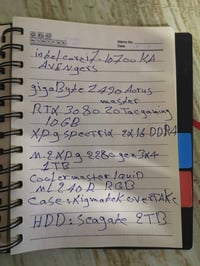 intel core i7-10700KA
AVENgers
gigabyte Z490 Aorus
master
RTX 3080.20 Tacgaming
10GB
XPg spectrix 2x16 DDR4
M-2 XPg 2280 gen 3x4
1TB
cooler master liquid
ML240R RGB
case: xigmatek overtake
HDD: Seagate 2TB